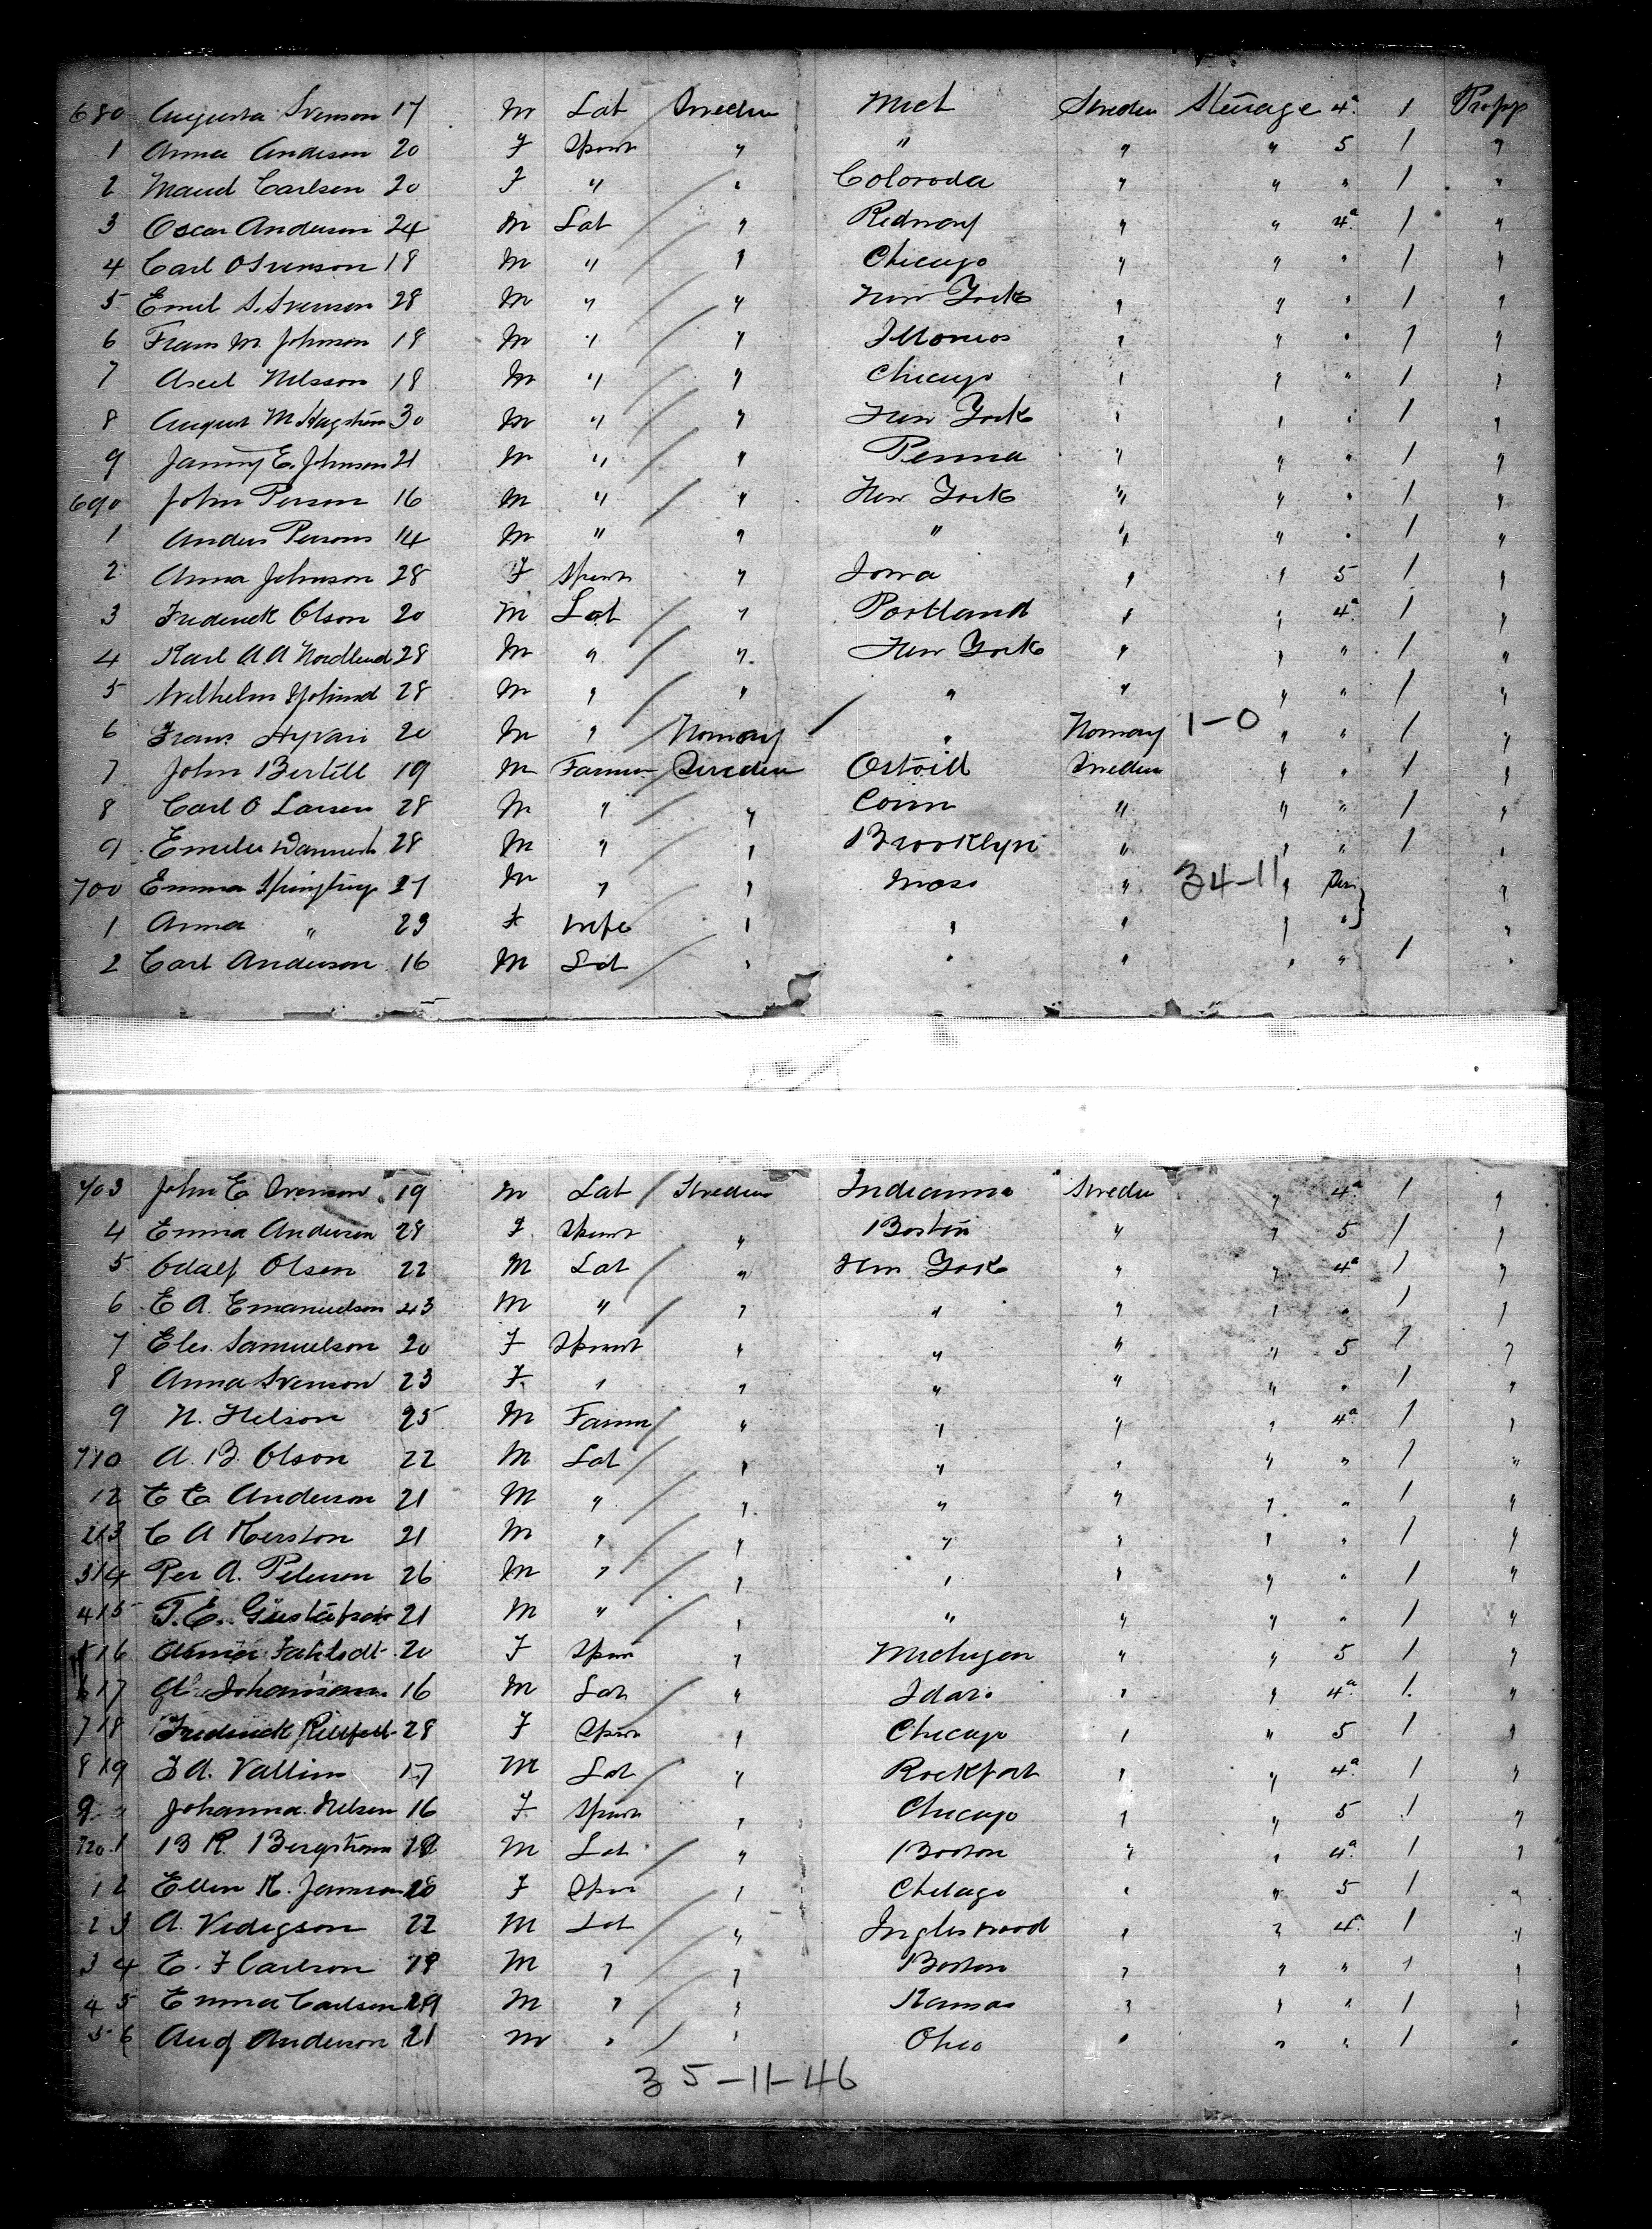 680 Augusta Svenson 17 M Lab Sweden Mich Sweden Steerage 4a 1 Propp
1 Anna Anderson 20 F Spinst " " " " 5 1 "
2 Maud Carlson 20 F " " Coloroda " " " 1 "
3 Oscar Anderson 24 M Lab " " " 4a 1 "
4 Carl O Svenson 18 M " " Chicago " " " 1 "
5 Emil S. Svenson 28 M " " New York " " " 1 "
6 Frans M. Johnson 18 M " " " " " 1 "
7 Axel Nilsson 18 M " " Chicago " " " 1 "
8 August M 30 M " " New York " " " 1 "
9 E. Johnson 21 M " " Penna " " " 1 "
690 John Person 16 M " " New York " " " 1 "
1 Anders Persons 14 M " " " " " " 1 "
2 Anna Johnson 28 F Spinst " Iowa " " 5 1 "
3 Frederick Olson 20 M Lab " Portland " " 4a 1 "
4 Karl A.A Nordlund 28 M " " New York " " " 1 "
5 Wilhelm 28 M " " " " " " 1 "
6 Frans 20 M " Norway " Norway 1-0 " " 1 "
7 John Bertill 19 M Farmer Sweden Sweden " " 1 "
8 Carl O Larsen 28 M " " Conn " " " 1 "
9 28 M " " Brooklyn " " " 1 "
700 Emma 27 M " " Mass " 34-11 " "
1 Anna " 23 F Wife " " " " " "
2 Carl Anderson 16 M Lab " " " " " 1 "
703 John E Svenson 19 M Lab Sweden Indianna Sweden " 4a 1 "
4 Emma Anderson 28 F Spinst " Boston " " 5 1 "
5 Odalf Olsen 22 M Lab " New York " " 4a 1 "
6 E A. Emanuelson 43 M " " " " " " 1 "
7 Samuelson 20 F Spinst " " " " 5 1 "
8 Anna Svenson 23 F " " " " " " 1 "
9 N. Nelson 25 M Farmer " " " " 4a 1 "
710 A. B. Olson 22 M Lab " " " " " 1 "
12 E E Anderson 21 M " " " " " " 1 "
213 C A Kerston 21 M " " " " " " 1 "
314 Per A. Peterson 26 M " " " " " " 1 "
415 T. E. Gustafson 21 M " " " " " " 1 "
516 20 F Spins " Michigan " " 5 1 "
617 Johanson 16 M Lab " Idaho " " 4a 1 "
718 Frederick 28 F Spins " Chicago " " 5 1 "
819 A. Vallin 17 M Lab " Rockfort " " 4a 1 "
9 " Johanna Nelsen 16 F Spinst " Chicago " " 5 1 "
720 1 B R. Bergstrom 18 M Lab " Boston " " 4a 1 "
1 2 Ellen K. 28 F Spin " Chicago " " 5 1 "
2 3 A. Vidigson 22 M Lab " Inglewood " " 4a 1 "
3 4 E. F Carlson 19 M " " Boston " " " 1 "
4 5 Emma Carlson 29 M " " Kansas " " " 1 "
5 6 Aug Anderson 21 M " " Ohio " " " 1 "
35-11-46